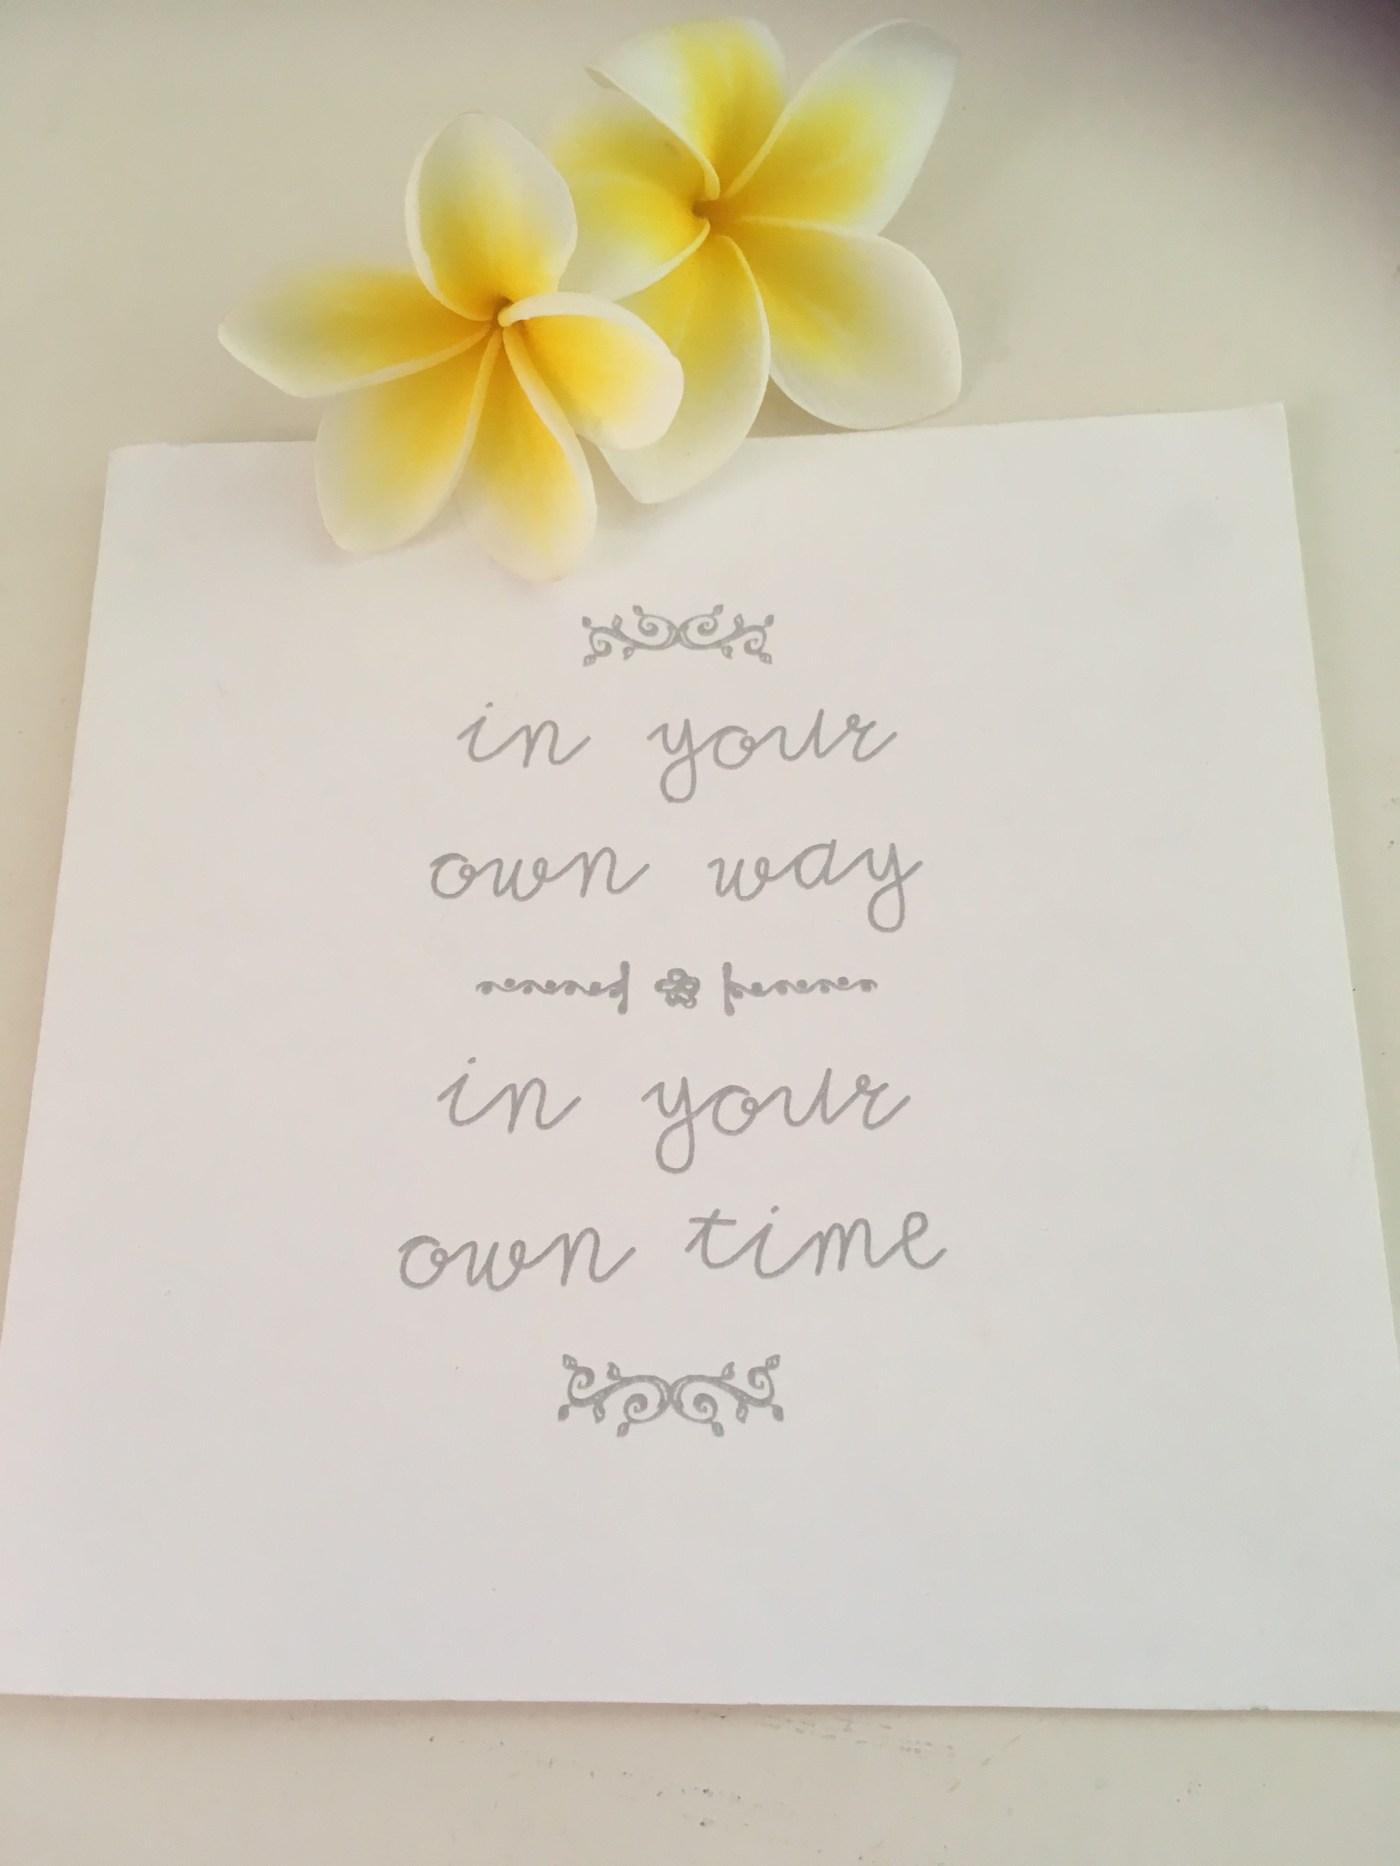 in your
own way
in your
own time